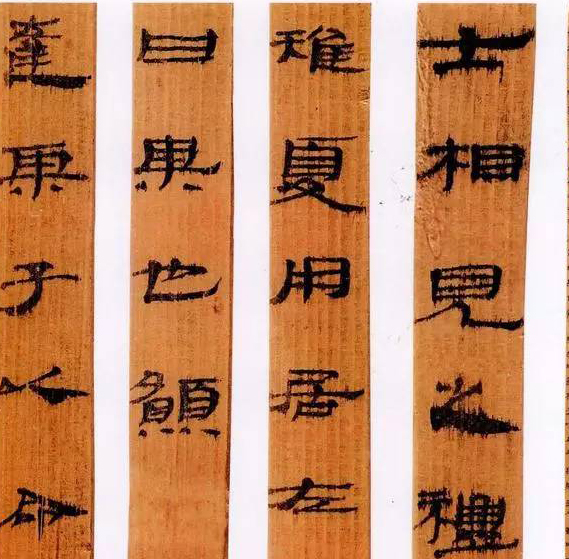 士相見之禮
雉夏用居左
曰某也願
達某子以命